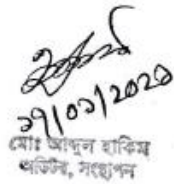 ১৭/০১/২০২১
মোঃ আব্দুল হাকিম
অডিটর, সংস্থাপন